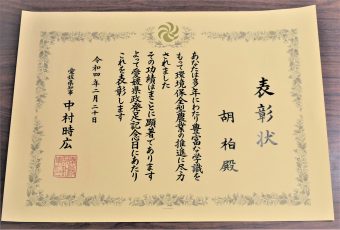 表彰状
胡柏殿
あなたは多年にわたり豊富な学識を
もって環境保全型農業の推進に尽力
されました
その功績はまことに顕著であります
よって愛媛県政発足記念日にあたり
これを表彰します
令和四年二月二十日
愛媛県知事 中村時広